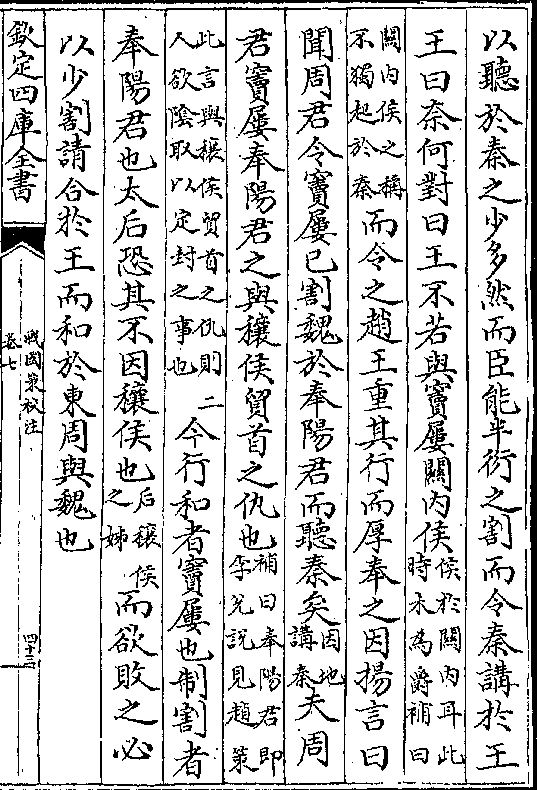 以聽於秦之少多然而臣能半衍之割而令秦講於王
王曰奈何對曰王不若與竇屢關內侯侯於關內耳此時未為爵補曰
關內侯之稱不獨起於秦而令之趙王重其行而厚奉之因揚言曰
聞周君令竇屢已割魏於奉陽君而聽秦矣因地講秦夫周
君竇屢奉陽君之與穰侯貿首之仇也補曰奉陽君即李兌說見趙策
此言與穰侯貿首之仇則人欲陰取以定封之事也二今行和者竇屢也制割者
奉陽君也太后恐其不因穰侯也后穰侯之姊而欲敗之必
以少割請合於王而和於東周與魏也
欽定四庫全書
戰國策校注
卷七
四十三